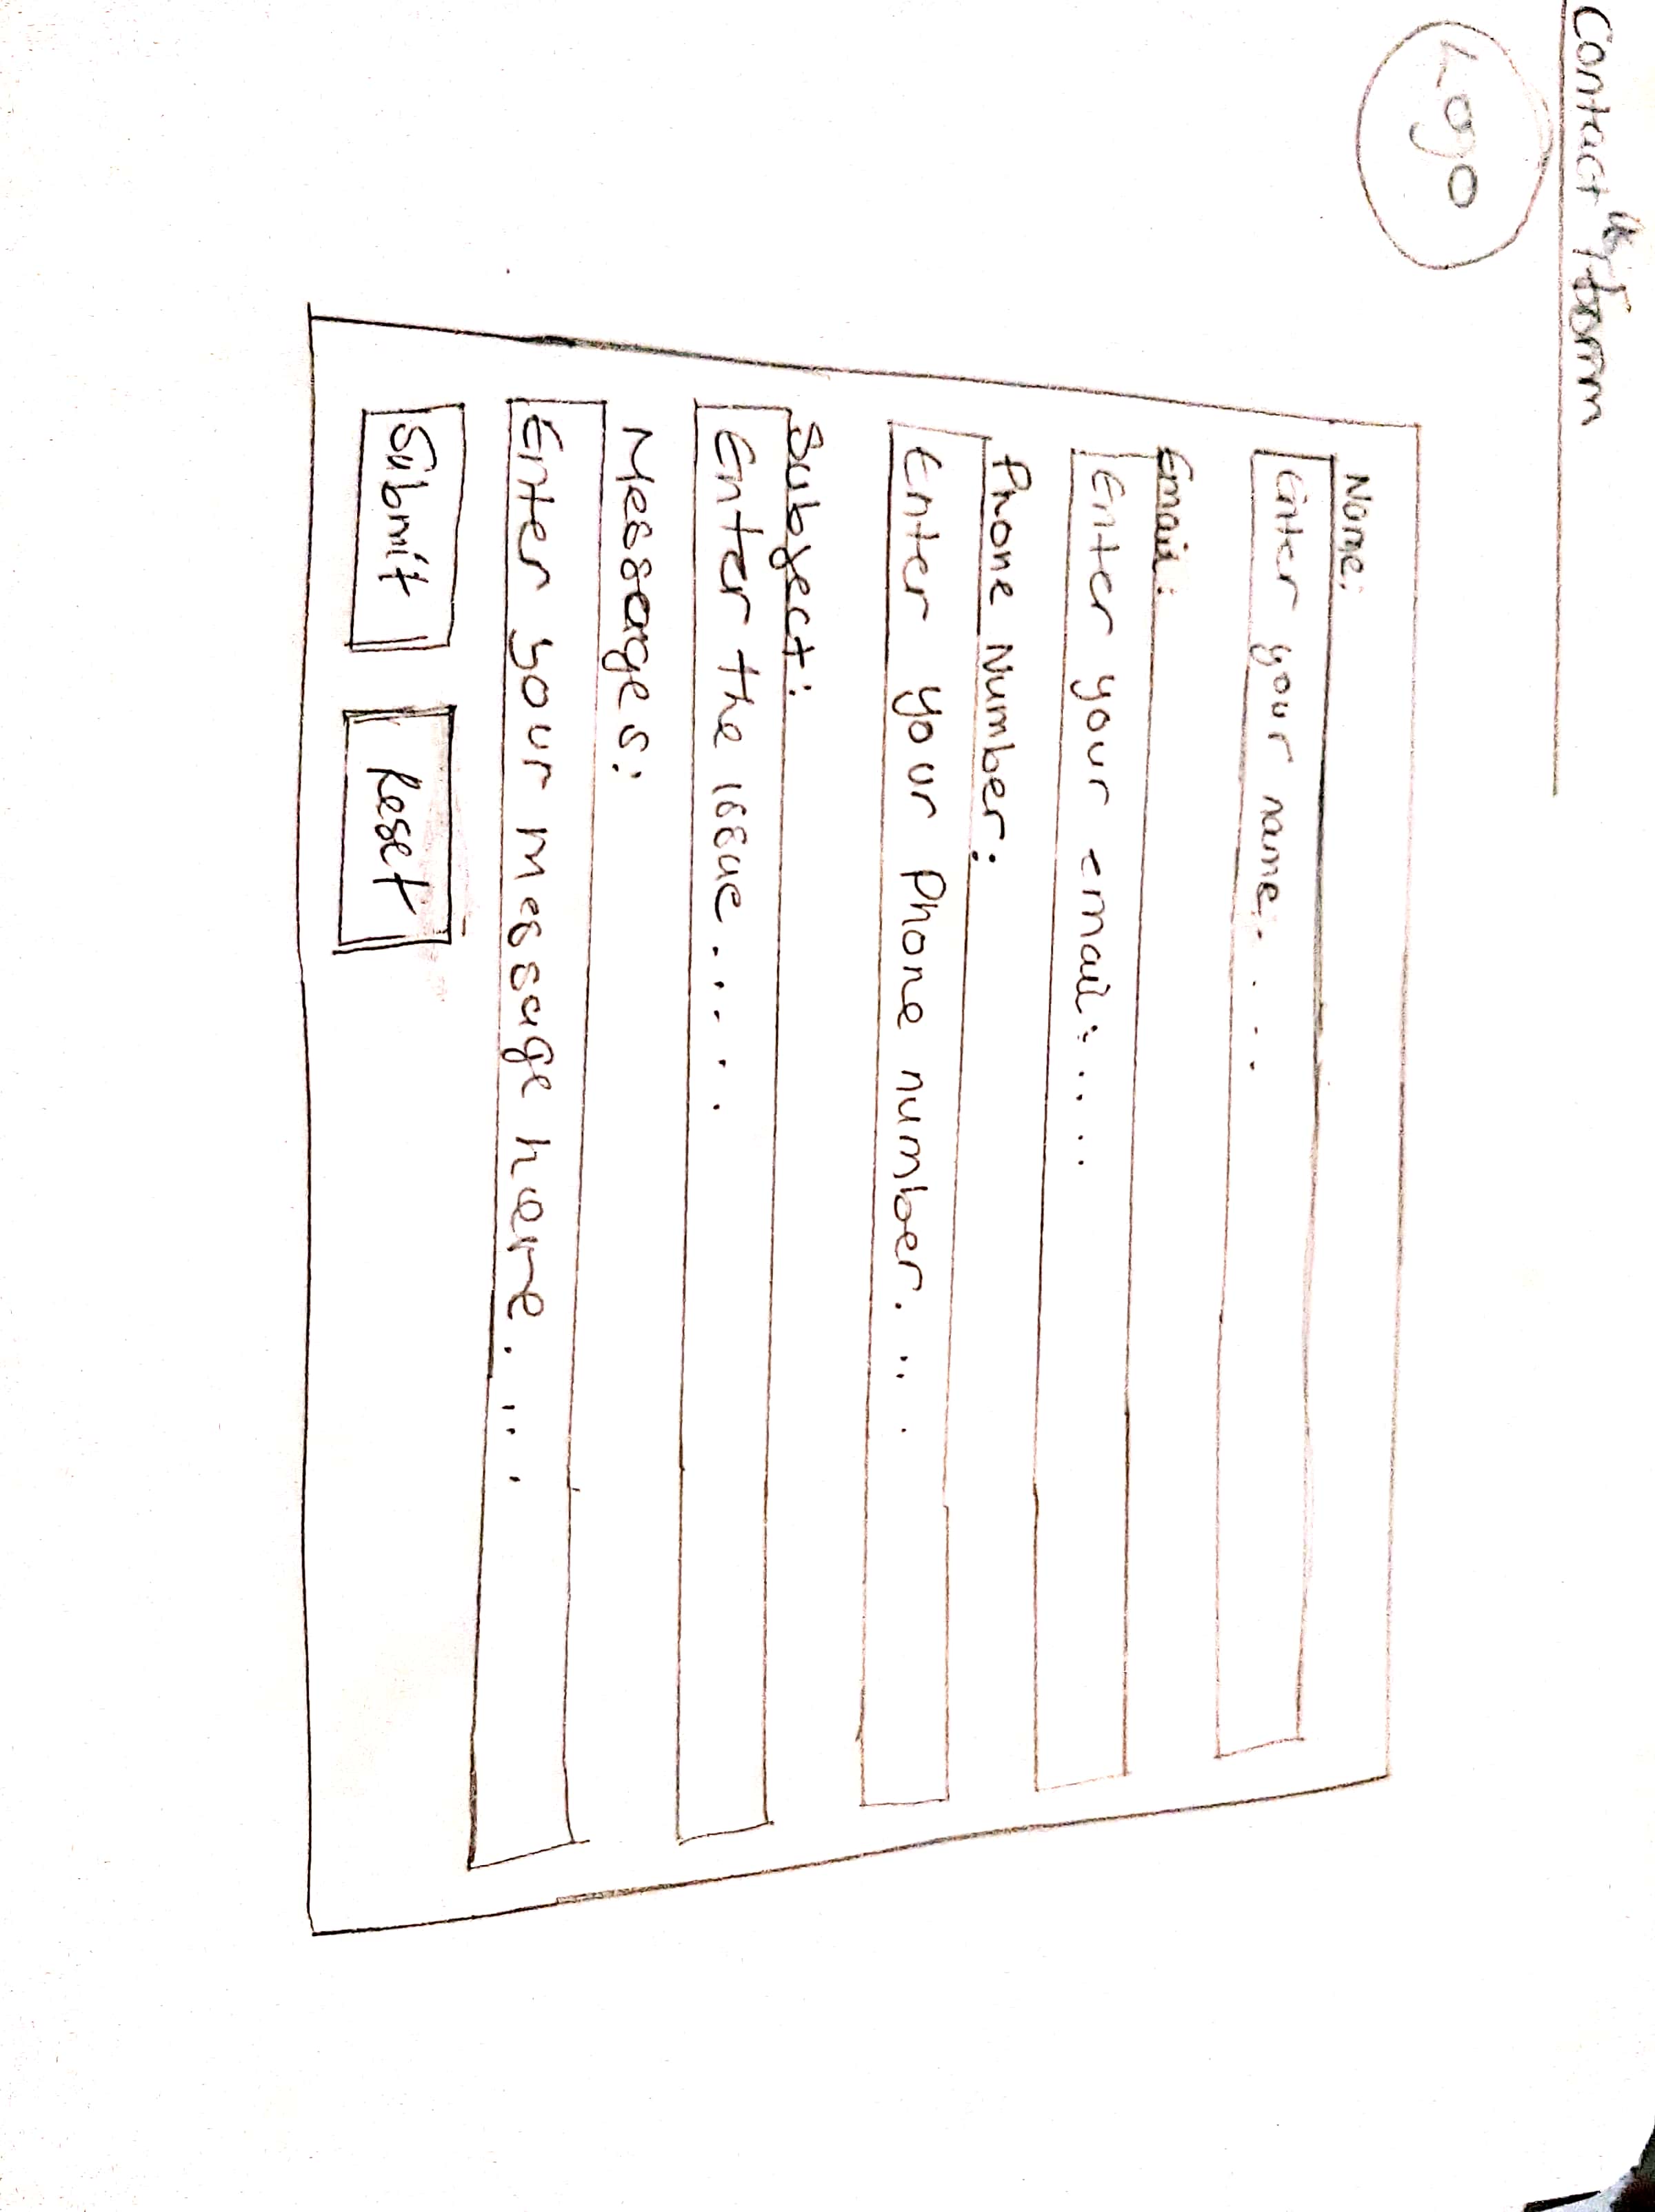 Contact us Form
Logo
Name:
Enter your name.....
Email:
Enter your email.....
Phone Number:
Enter your Phone number.....
Subject:
Enter the issue......
Messages:
Enter your message here.....
Submit
Reset